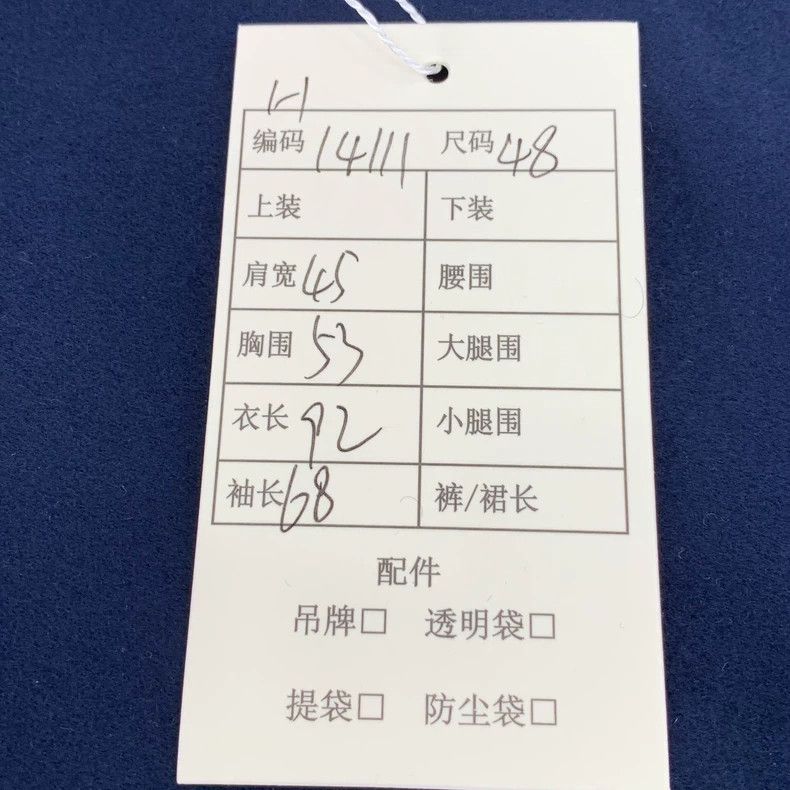 1-1
编码 14111 尺码 48
上装 下装
肩宽 45 腰围
胸围 53 大腿围
衣长 92 小腿围
袖长 68 裤/裙长
配件
吊牌□ 透明袋□
提袋□ 防尘袋□